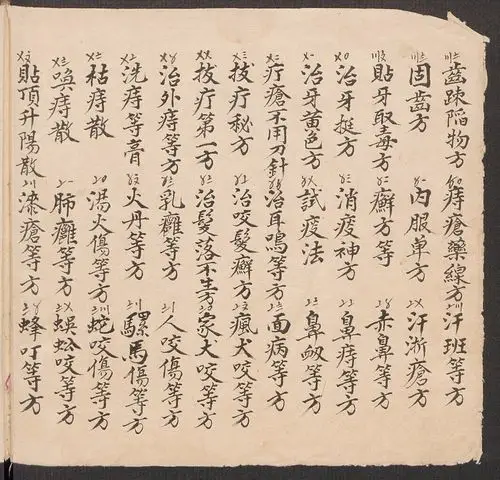 齒疎陷物方 痔瘡藥線方 汗班等方
固齒方 內服单方 汗淅瘡方
貼牙取毒方 癬方等 赤鼻等方
治牙挺方 消疫神方 鼻痔等方
治牙黄色方 試疫法 鼻衂等方
疔瘡不用刀針 治耳鳴等方 面病等方
拔疔秘方 治咬髮癬方 瘋犬咬等方
拔疔第一方 治髮落不生方 家犬咬等方
治外痔等方 乳癰等方 人咬傷等方
洗痔等膏 火丹等方 騾馬傷等方
枯痔散 湯火傷等方 蛇咬傷等方
喚痔散 肺癰等方 蜈蚣咬等方
貼頂升陽散 漆瘡等方 蜂叮等方